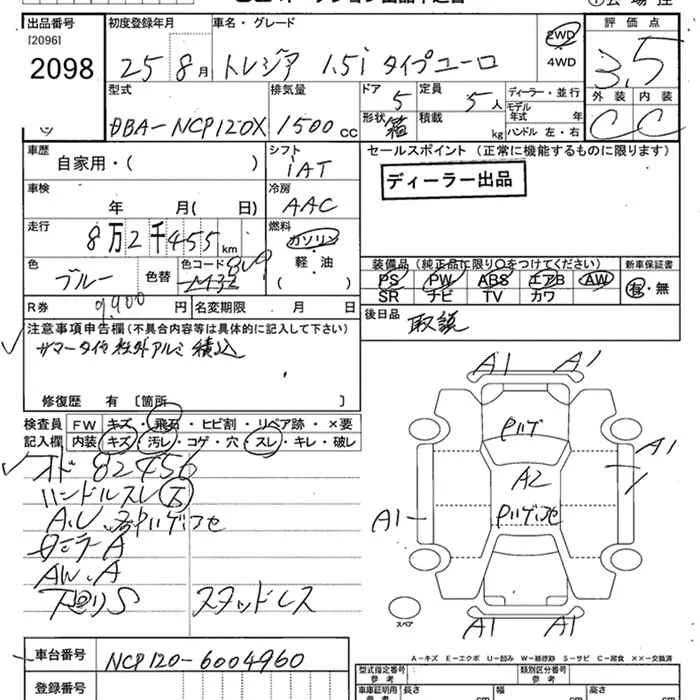 出品番号 初度登録年月 車名・グレード 評価点
[2096]
2098 25 8月 トレジア 1.5i タイプユーロ 2WD 3.5
4WD
型式 排気量 ドア 定員 ディーラー・並行 外装 内装
DBA-NCP120X 1500cc 5 5人 モデル年式 年 C C
形状 箱 積載 kg ハンドル 左・右
車歴 シフト セールスポイント (正常に機能するものに限ります)
自家用・( ) iAT
ディーラー出品
車検 冷房
年 月( 日) AAC
走行 燃料
8万2千455km ガソリン
軽・油
( )
色 色替 色コード 装備品(純正品に限り○をつけてください) 新車保証書
ブルー PS PW ABS エアB AW 有・無
SR ナビ TV カワ
R券 9,900円 名変期限 月 日 後日品
取説
注意事項申告欄(不具合内容等は具体的に記入して下さい)
サマータイヤ社外アルミ積込
修復歴 有 [箇所 ]
検査員 FW キズ・飛石・ヒビ割・リペア跡・×要
記入欄 内装 キズ・汚レ・コゲ・穴・スレ・キレ・破レ
オド 82456
ハンドルスレ大
AW.A
下廻りS スタッドレス
A1 A1
A2
A1
A1
A1 A1
スペア
A-キズ E-エクボ U-凹み W-補修跡 S-サビ C-腐食 ××-交換済
車台番号 NCP120-6004960
型式指定番号 参考 類別区分番号 参考
登録番号
車庫証明用 参考 長さ cm 幅 cm 高さ cm